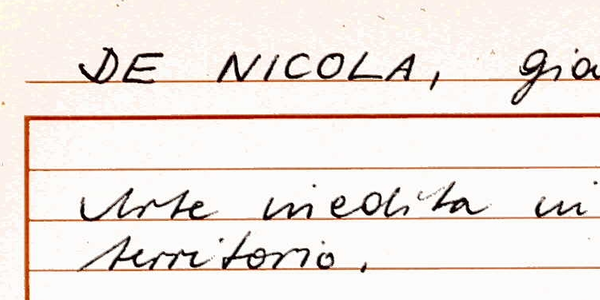 DE NICOLA, Gia
Arte inedita in
territorio.